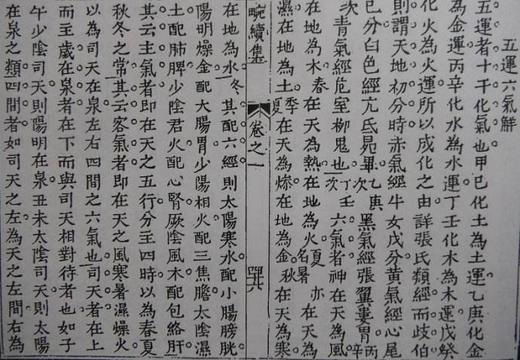 五運六氣解
五運者十干化氣也甲己化土為土運乙庚化金
為金運丙辛化水為水運丁壬化木為木運戊癸
化火為火運所以成化之由詳張氏類經而歧伯
則謂天地初分時赤氣經牛女戊分黃氣經心尾
己分白色經亢氐昴畢乙庚次黑氣經張翼婁胃丙辛
次青氣經危室柳鬼也丁壬次六氣者神在天為風
在地為木春在天為熱在地為火夏亦名暑在天為
濕在地為土季夏在天為燥在地為金秋在天為寒
畹續集
卷之一
在地為水冬其配六經則太陽寒水配小腸膀胱
陽明燥金配大腸胃少陽相火配三焦膽太陰濕
土配肺脾少陰君火配心腎厥陰風木配包絡肝
其云主氣者即在天之五行分主四時以為春夏
秋冬之常其云客氣者即在天之風寒暑濕燥火
以為司天在泉左右四間之六氣也司天者在上
而主歲在泉者在下而與司天相對待者也如子
午少陰司天則陽明在泉丑未太陰司天則太陽
在泉之類四間者如司天之左為天之左間右為